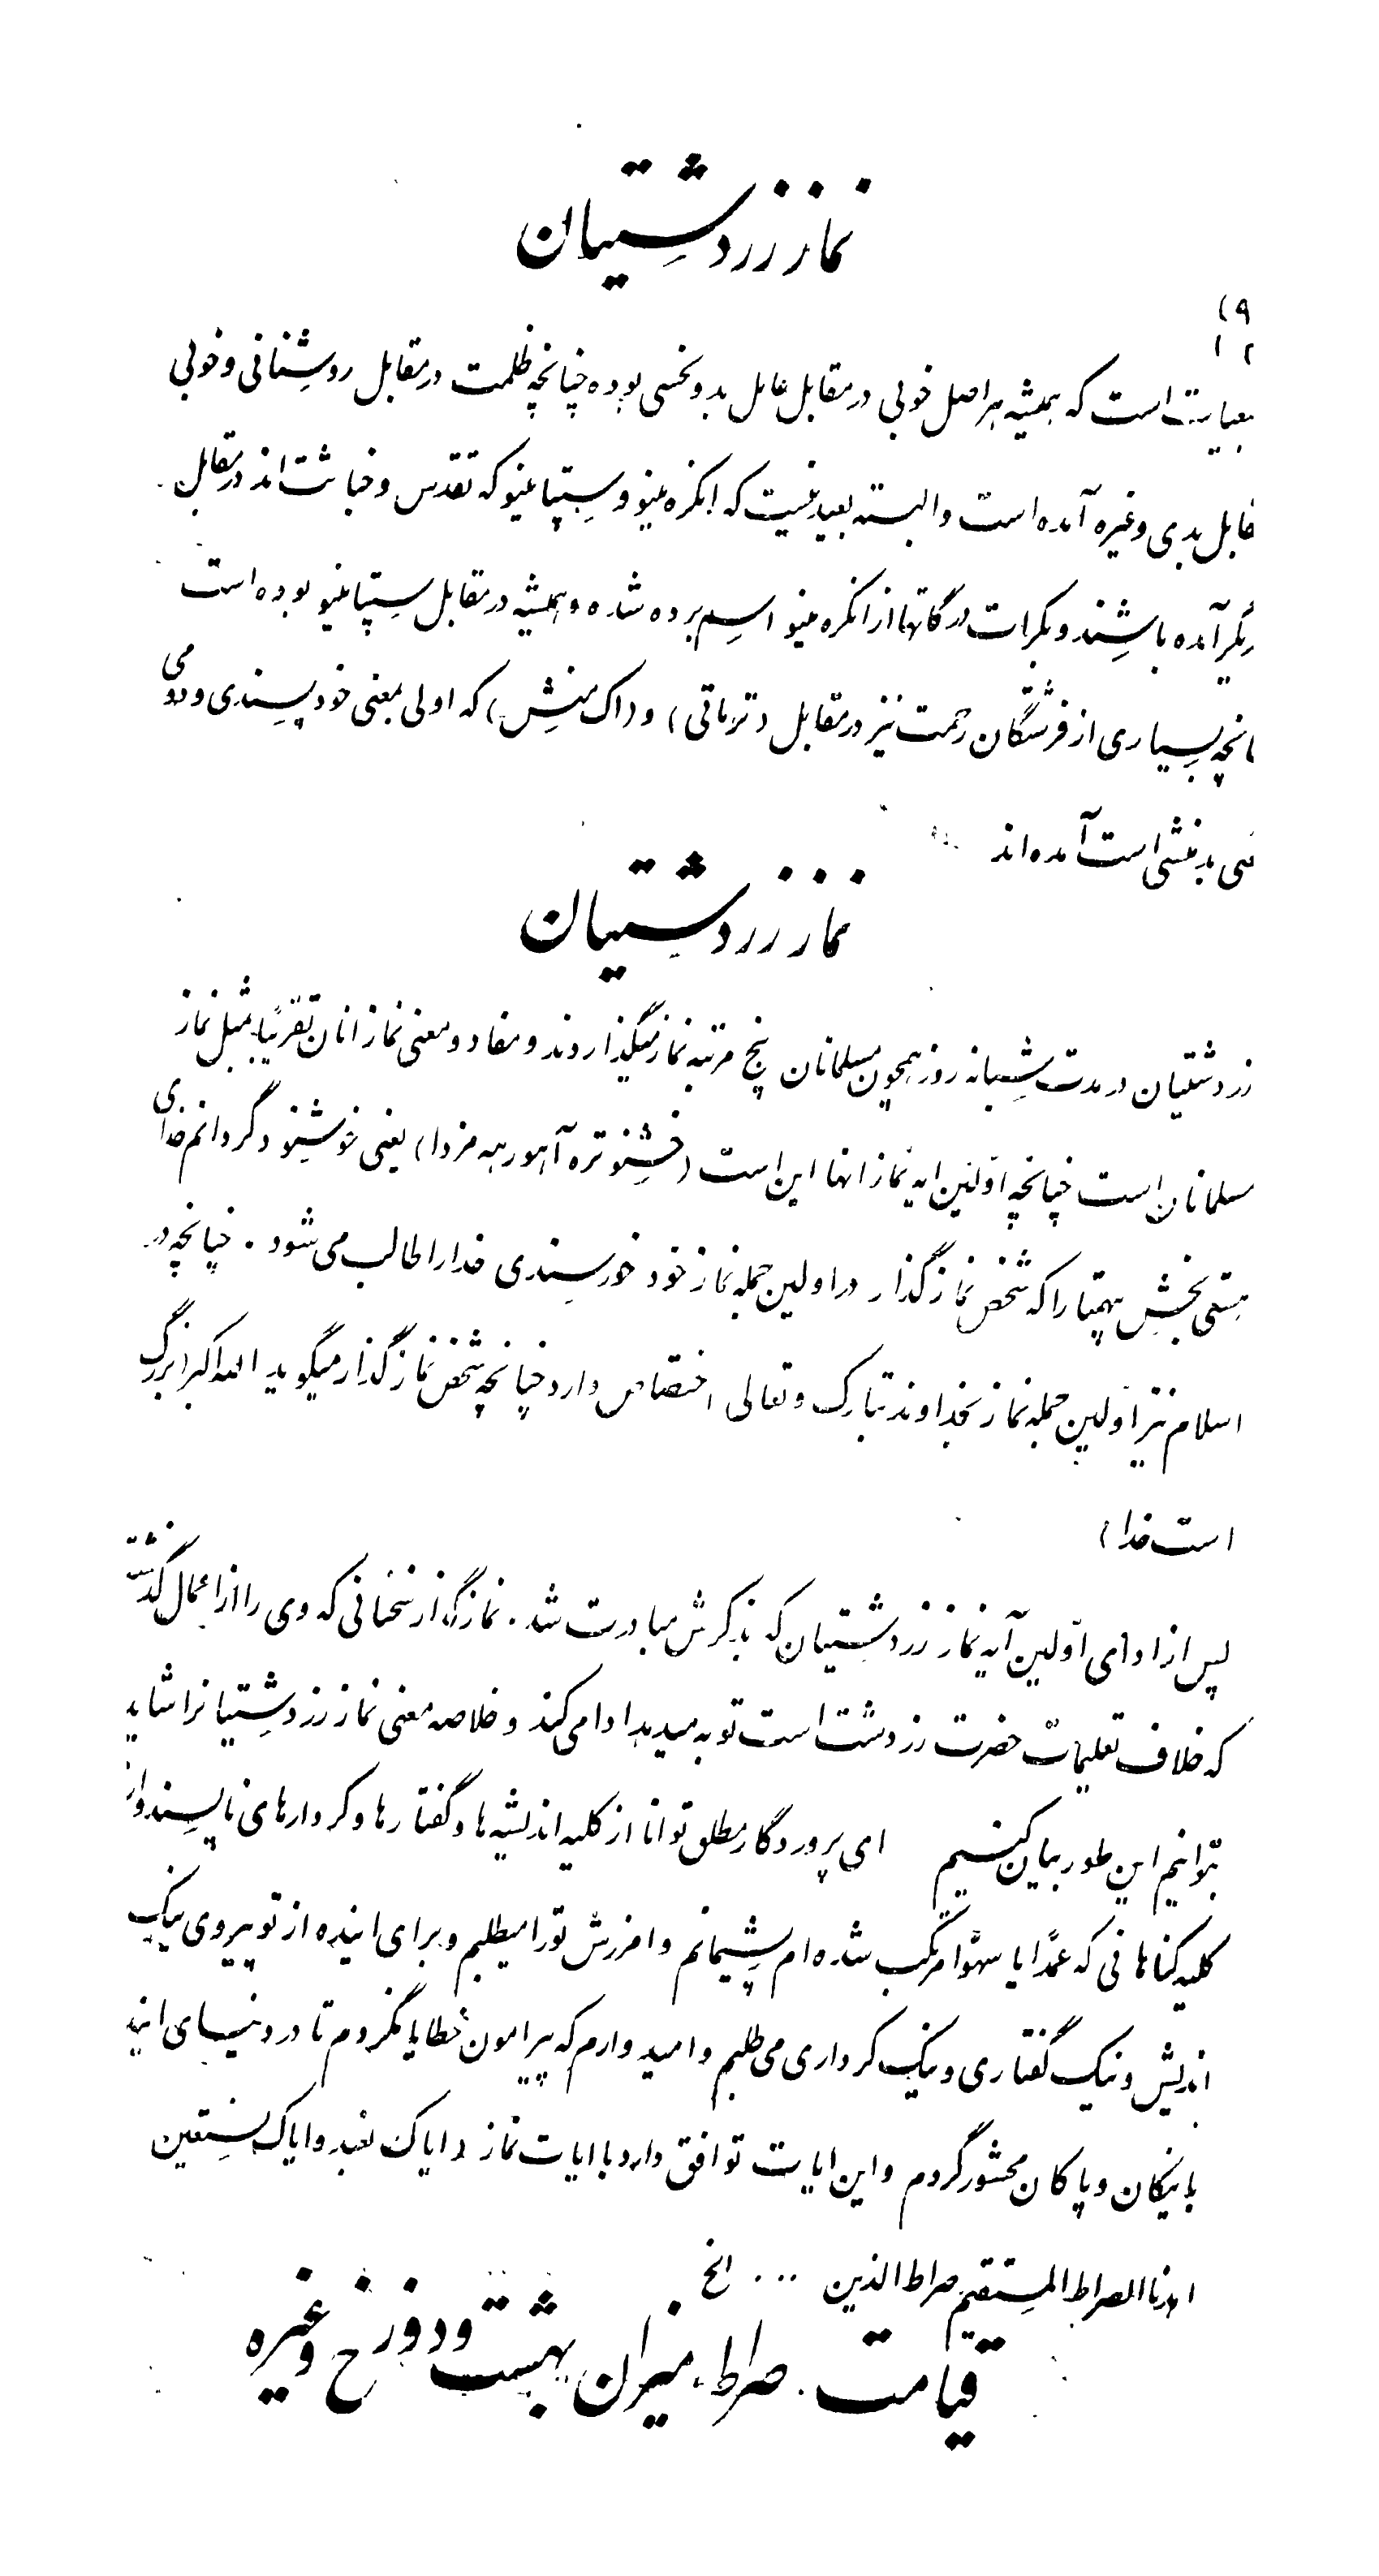 نماز زردشتیان
۹)
۲ ۱
است که همیشه هر اصل خوبی در مقابل عامل بد و نحسی بوده چنانچه ظلمت در مقابل روشنائی و خوبی
قابل بدی و غیره آمده است و البته بعید نیست که انگره مینو و سپنتا مینو که تقدس و خباثت اند در مقابل
دیگر آمده باشند و بکرات در گاتها از انگره مینو اسم برده شده و همیشه در مقابل سپنتا مینو بوده است
انچه بسیاری از فرشتگان رحمت نیز در مقابل (ترماتی) و (اک منش) که اولی بمعنی خود پسندی و دومی
بدمنشی است آمده اند
نماز زردشتیان
زردشتیان در مدت شبانه روز همچون مسلمانان پنج مرتبه نماز میگذاروند و مفاد و معنی نماز انان تقریباً بمثل نماز
مسلمانان است چنانچه اوّلین ایه نماز انها این است (خشنوتره آهورهه مزدا) یعنی خوشنود گردانم خدای
هستی بخش بیهمتا را که شخص نماز گذار در اولین جمله نماز خود خورسندی خدا را طالب می شود . چنانچه در
اسلام نیز اوّلین جمله نماز بخداوند تبارک و تعالی اختصاص دارد چنانچه شخص نماز گذار میگوید الله اکبر (بزرگ
است خدا)
پس از ادای اوّلین آیه نماز زردشتیان که بذکرش مبادرت شد . نماز گذار سخنانی که وی را از اعمال گذشته
که خلاف تعلیمات حضرت زردشت است توبه میدهد ادا می کند و خلاصه معنی نماز زردشتیانرا شاید
بتوانیم این طور بیان کنیم ای پروردگار مطلق توانا از کلیه اندیشه ها و گفتارها و کردارهای ناپسند و از
کلیه گناهانی که عمداً یا سهواً مرتکب شده ام پشیمانم و امرزش تو را میطلبم و برای اینده از تو پیروی نیک
اندیش و نیک گفتاری و نیک کرداری می طلبم و امیدوارم که پیرامون خطایا نگردم تا در دنیای اینده
با نیکان و پاکان محشور گردم و این ایات توافق دارد با ایات نماز (ایاک نعبد و ایاک نستعین
اهدنا الصراط المستقیم صراط الذین ... الخ
قیامت . صراط . میزان بهشت و دوزخ و غیره